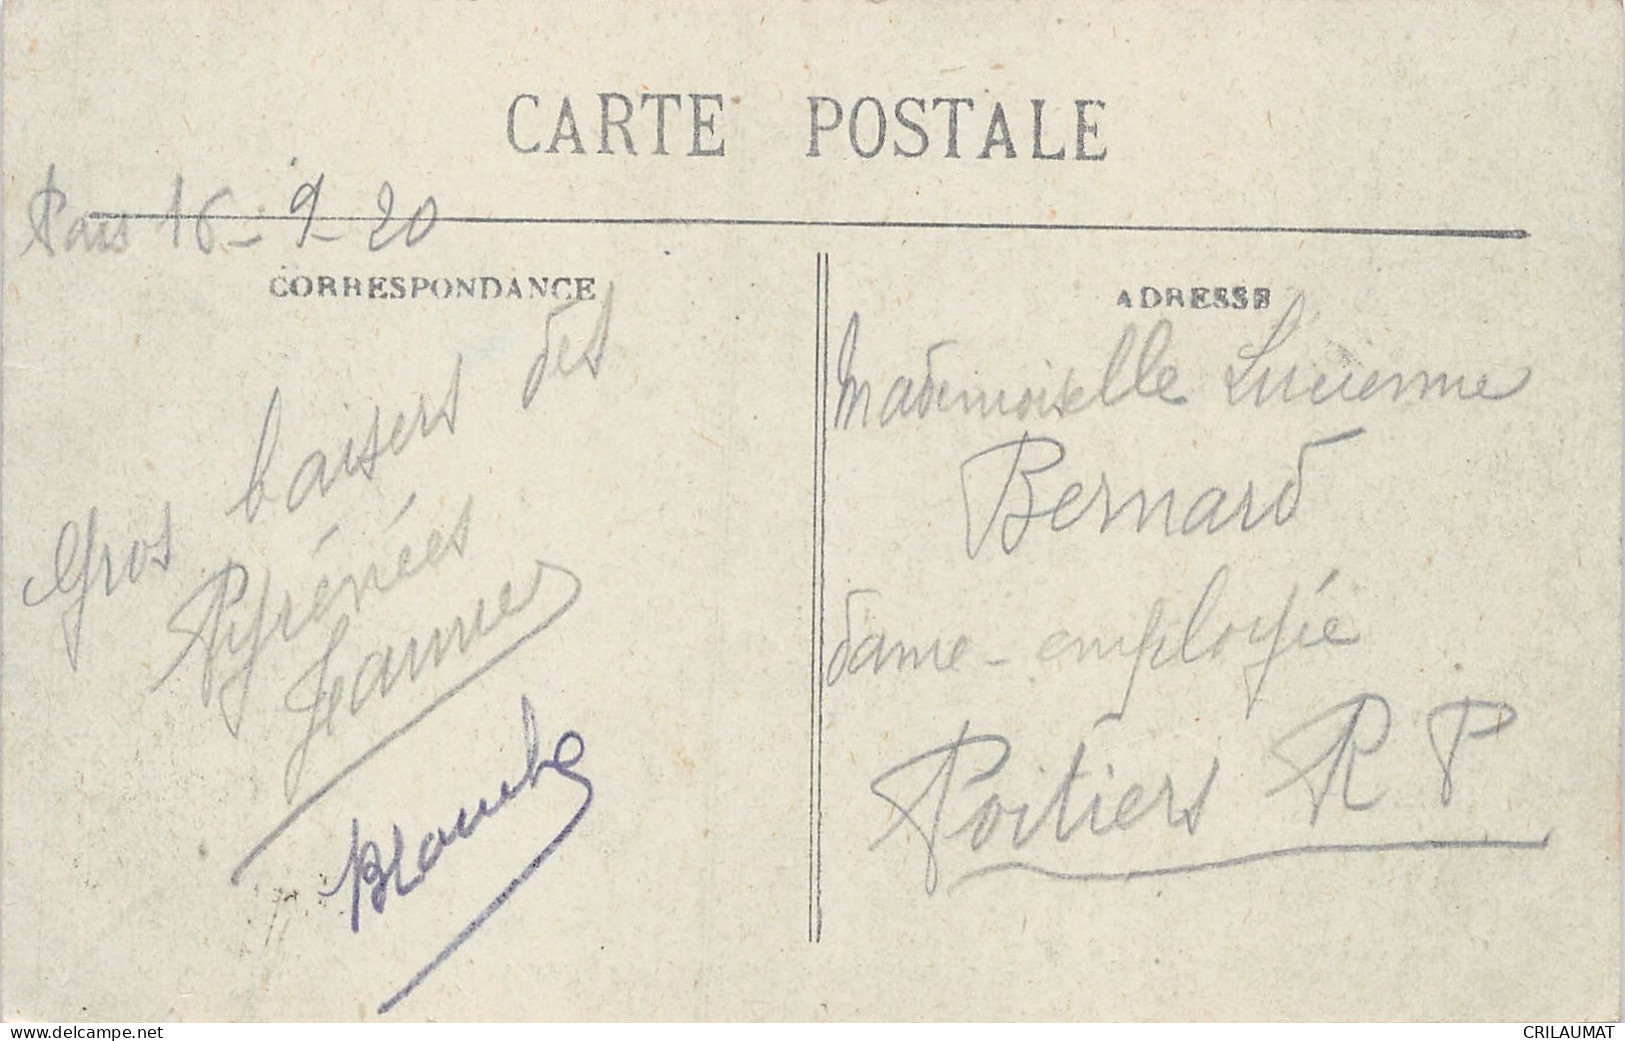 CARTE POSTALE
16-9-20
CORRESPONDANCE
Gros baisers des
Pyrénées
Jeanne
Blanche
ADRESSE
Mademoiselle Lucienne
Bernard
dame-employée
Poitiers R P
www.delcampe.net
CRILAUMAT